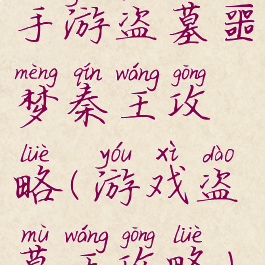 手游盗墓噩
mèng qín wáng gōng
梦秦王攻
lüè yóu xì dào
略(游戏盗
mù wáng gōng lüè
墓王攻略)